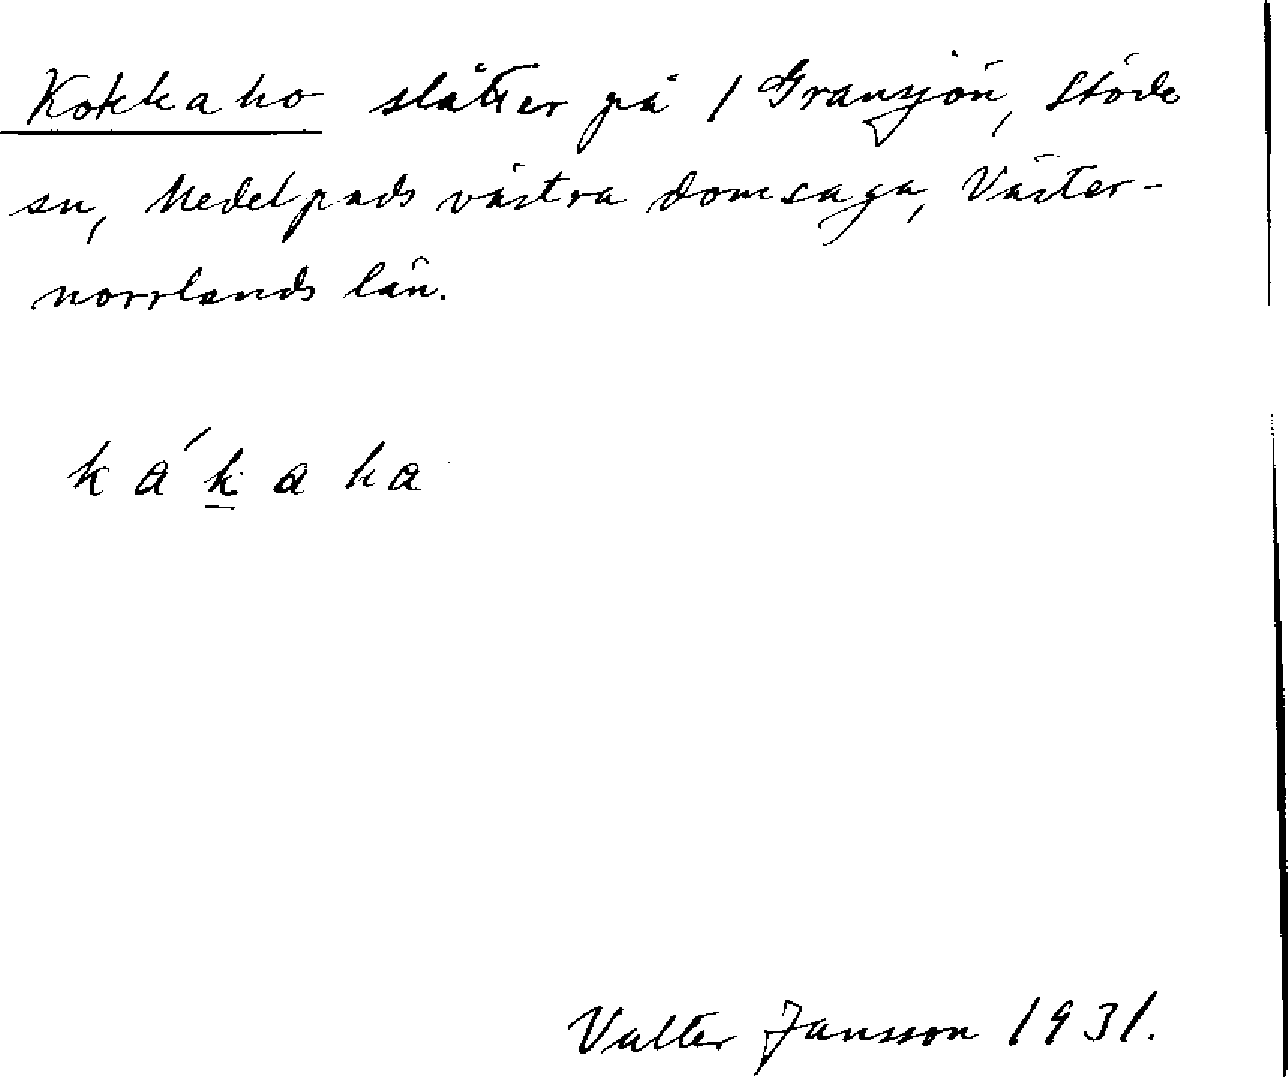 Kokkaho slåtter på 1 Gransjön, Stöde
sn, Medelpads västra domsaga, Väster-
norrlands län.
ká́kaha
Valter Jansson 1931.